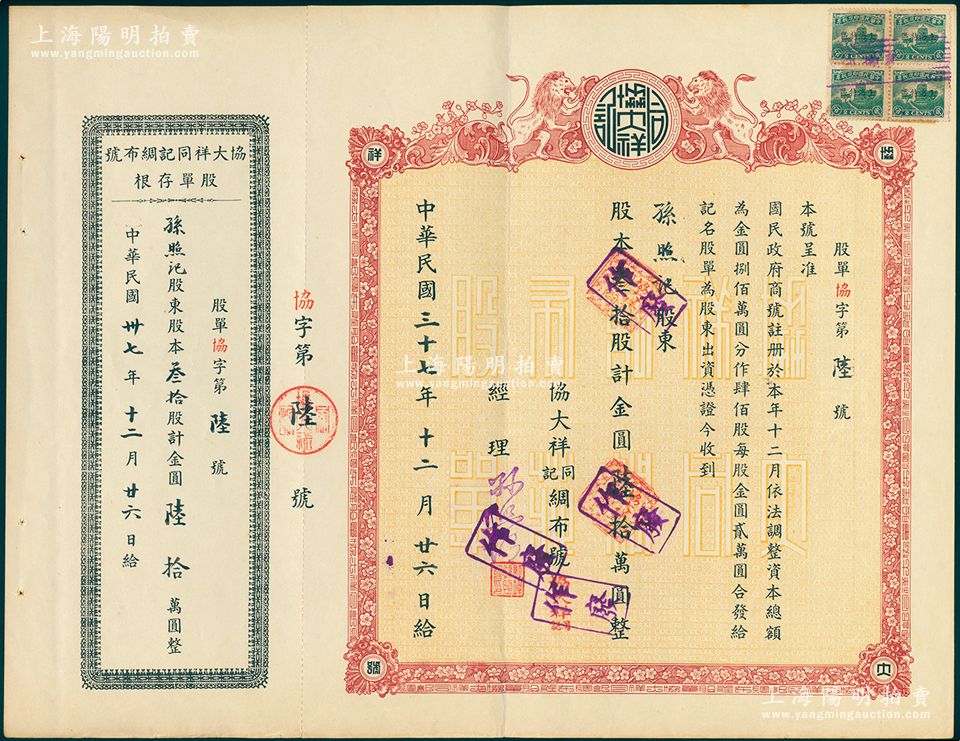 上海陽明拍賣
www.yangmingauction.com
CENTS
CENTS
CENTS
CENTS
協大祥
同
記
協
祥
大
號
股單協字第陸號
本號呈准
國民政府商號註册於本年十二月依法調整資本總額
為金圓捌佰萬圓分作肆佰股每股金圓貳萬圓合發給
記名股單為股東出資憑證今收到
孫照記股東
股本叁拾股計金圓陸拾萬圓整
協大祥同記綢布號
經理
中華民國三十七年十二月廿六日給
作廢
作廢
作廢
作廢
協字第陸號
協大祥同記綢布號
股單存根
股單協字第陸號
孫照記股東股本叁拾股計金圓陸拾萬圓整
中華民國卅七年十二月廿六日給
上海陽明拍賣
www.yangmingauction.com
上海陽明拍賣
www.yangmingauction.com